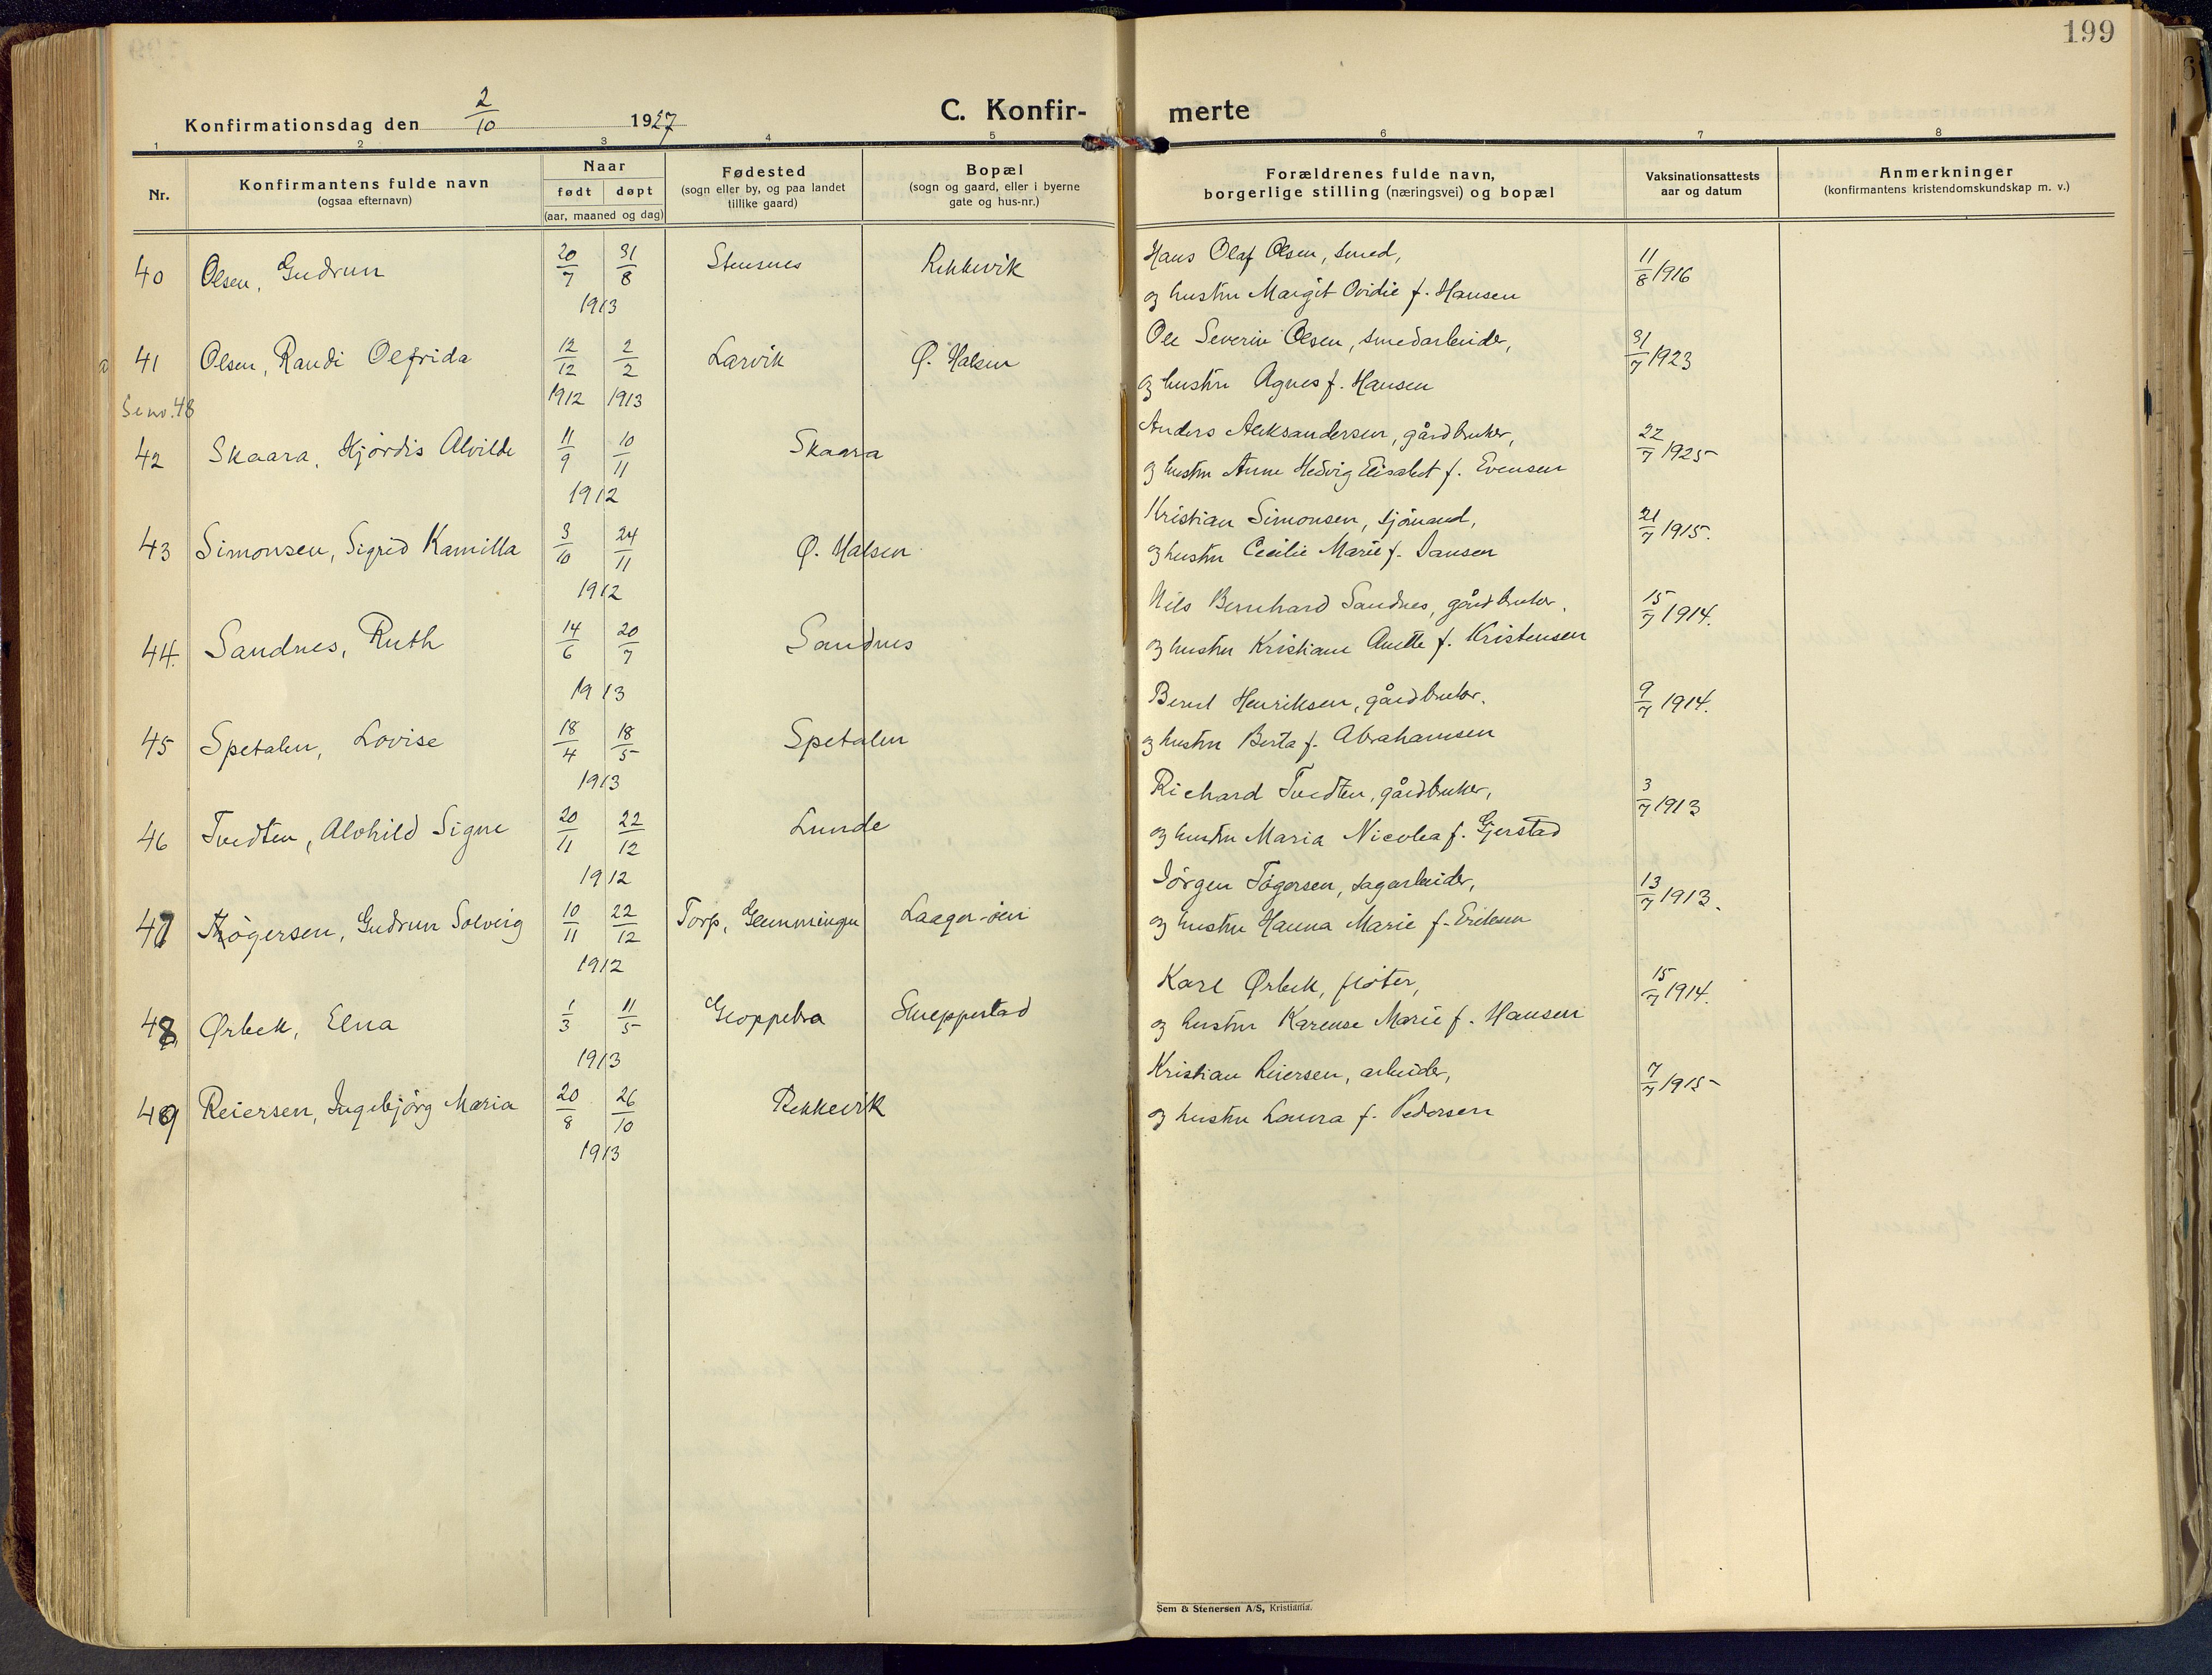 199
Konfirmationsdag den 2/10 1927
C. Konfir- merte
1 2 3 4 5 6 7 8
Nr.
Konfirmantens fulde navn
(ogsaa efternavn)
Naar
født døpt
(aar, maaned og dag)
Fødested
(sogn eller by, og paa landet
tillike gaard)
Bopæl
(sogn og gaard, eller i byerne
gate og hus-nr.)
Forældrenes fulde navn,
borgerlige stilling (næringsvei) og bopæl
Vaksinationsattests
aar og datum
Anmerkninger
(konfirmantens kristendomskundskap m. v.)
40 Olsen, Gudrun 20/7 31/8 1913 Stensnes Rekkevik
Hans Olaf Olsen, smed,
og hustru Margit Ovidie f. Hansen
11/8 1916
41 Olsen, Randi Olfrida 12/12 1912 2/2 1913 Larvik Ø. Halsen
Ole Severin Olsen, smedarbeider,
og hustru Agnes f. Hansen
31/7 1923
Se nr. 48
42 Skaara, Hjördis Alvilde 11/9 10/11 1912 Skaara
Anders Aleksandersen, gårdbruker,
og hustru Anne Hedvig Elisabet f. Evensen
22/7 1925
43 Simonsen, Sigrid Kamilla 3/10 24/11 1912 Ø. Halsen
Kristian Simonsen, sjömand,
og hustru Cecilie Marie f. Jansen
21/7 1915.
44. Sandnes, Ruth 14/6 20/7 1913 Sandnes
Nils Bernhard Sandnes, gårdbruker.
og hustru Kristiane Anette f. Kristensen
15/7 1914.
45 Spetalen, Lovise 18/4 18/5 1913 Spetalen
Bernt Henriksen, gårdbruker.
og hustru Berta f. Abrahamsen
9/7 1914.
46 Tvedten, Alvhild Signe 20/11 22/12 1912 Lunde
Richard Tvedten, gårdbruker,
og hustru Maria Nicolea f. Gjerstad
3/7 1913
47 Thögersen, Gudrun Solveig 10/11 22/12 1912 Torp, Glemminge Laager-öen
Jörgen Tögersen, sagarbeider,
og hustru Hanna Marie f. Eriksen
13/7 1913.
48 Ørbek, Elna 1/3 11/5 1913 Gloppebra Skreppestad
Karl Ørbek, fløter,
og hustru Karense Marie f. Hansen
15/7 1914.
49 Reiersen, Ingebjörg Maria 20/8 26/10 1913 Rekkevik
Kristian Reiersen, arbeider,
og hustru Laura f. Pedersen
7/7 1915
Sem & Stenersen A/S, Kristiania.